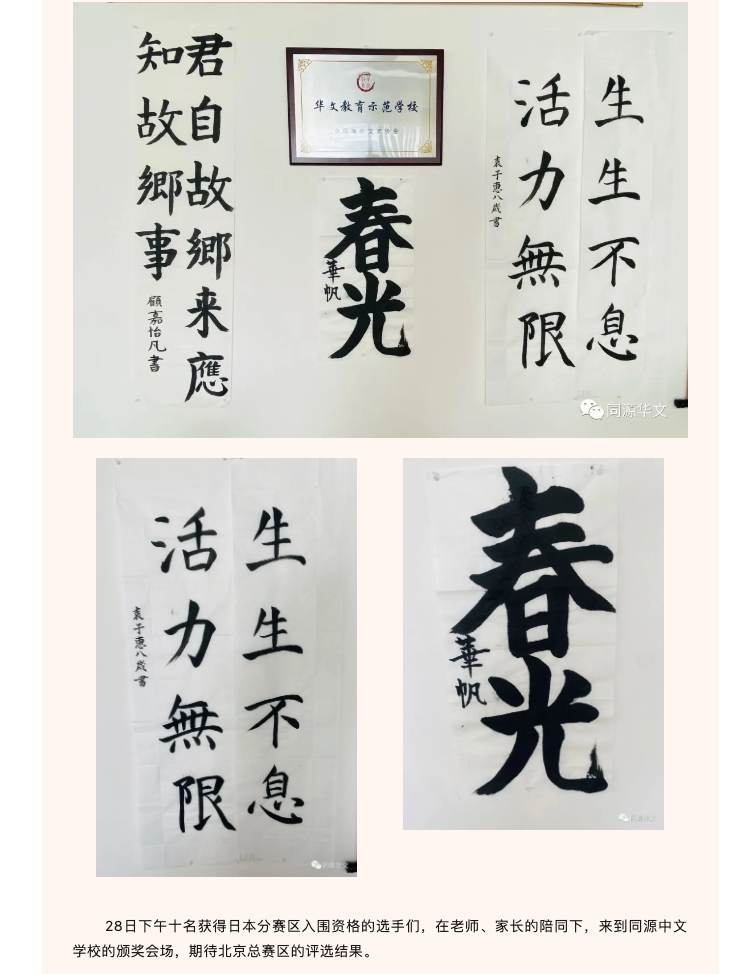 君自故鄉来應
知故鄉事
顧嘉怡凡書
华文教育示范学校
春光
華帆
生生不息
活力無限
袁子惠八歲書
同源华文
生生不息
活力無限
袁子惠八歲書
同源华文
春光
華帆
同源华文
28日下午十名获得日本分赛区入围资格的选手们，在老师、家长的陪同下，来到同源中文
学校的颁奖会场，期待北京总赛区的评选结果。